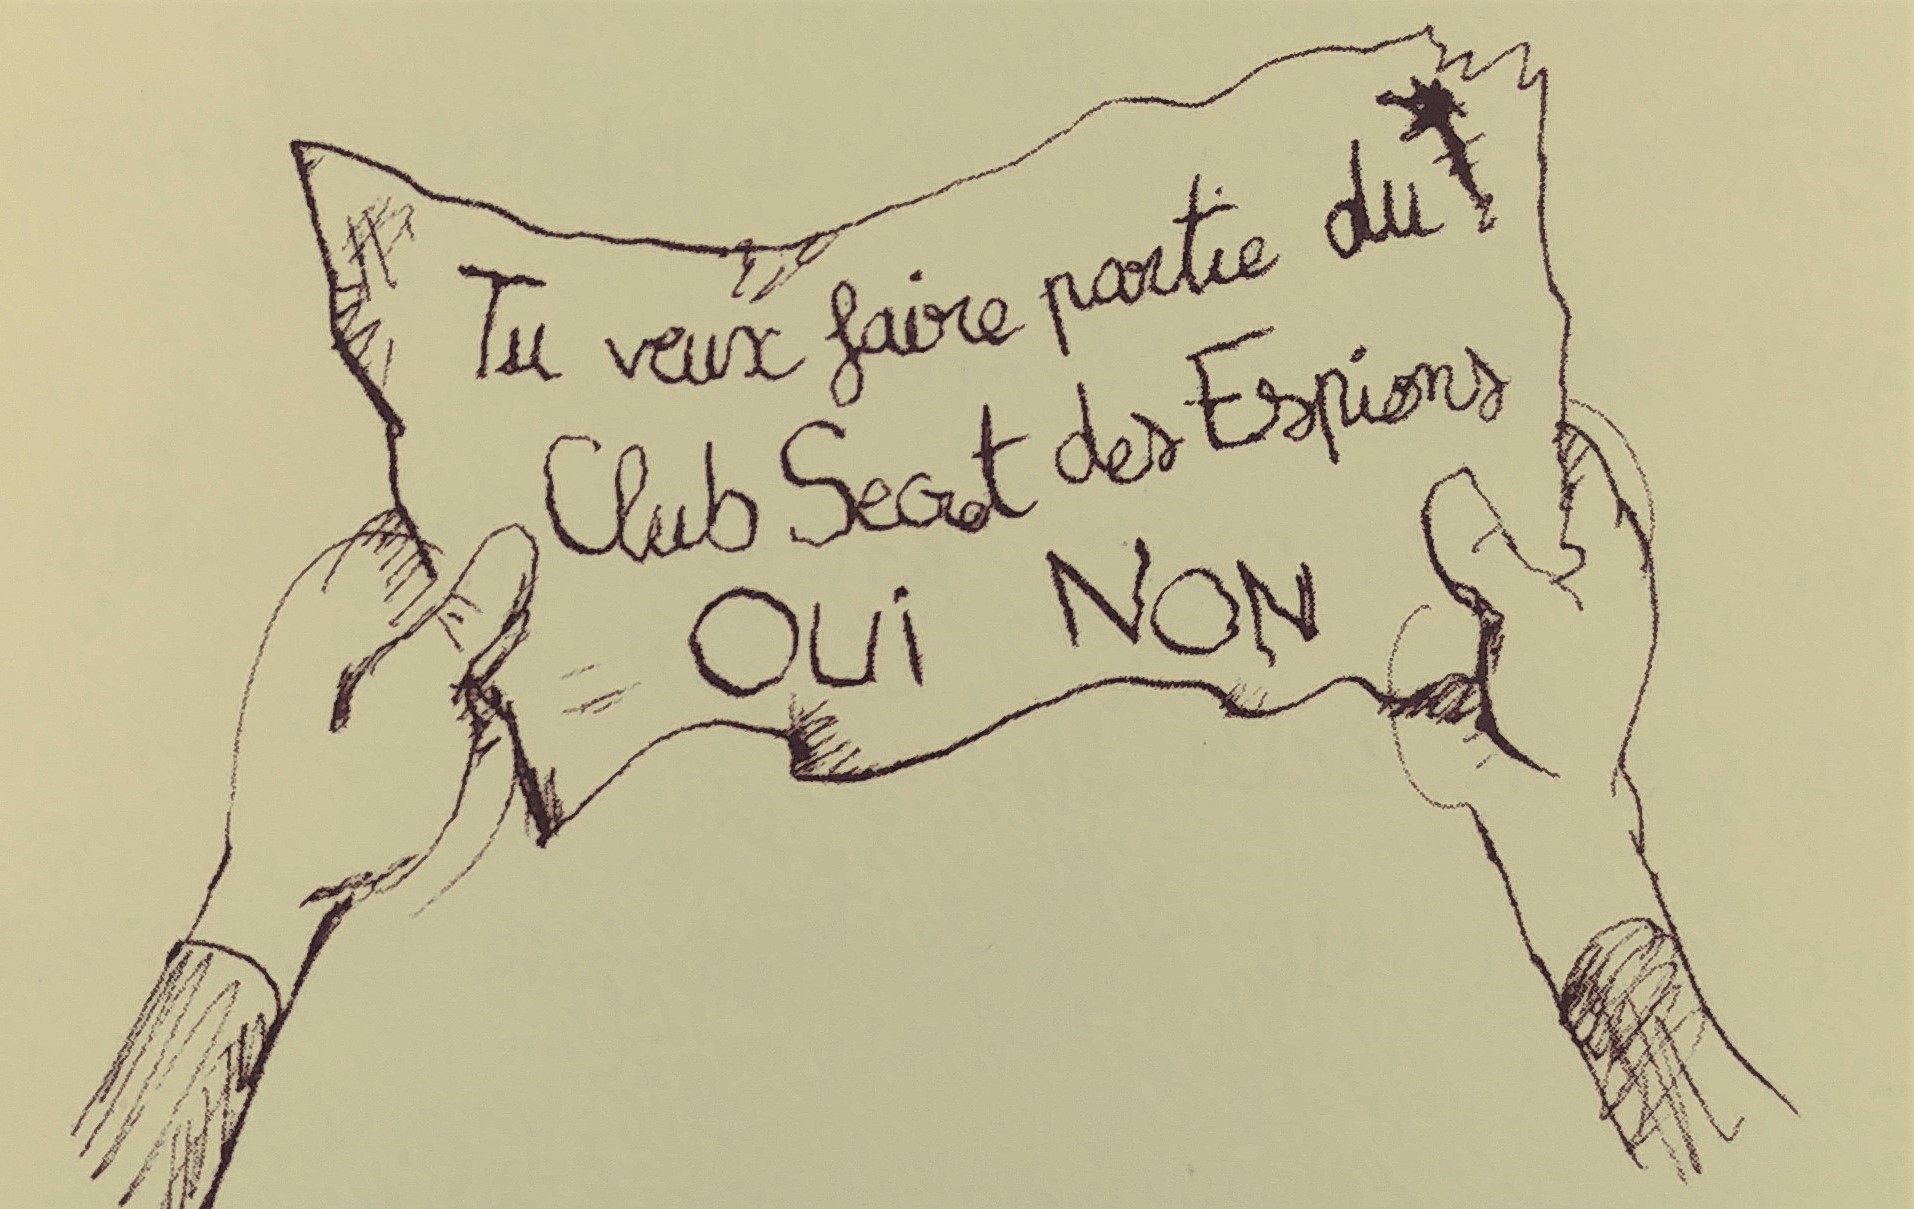 Tu veux faire partie du
Club Secret des Espions
OUi NON